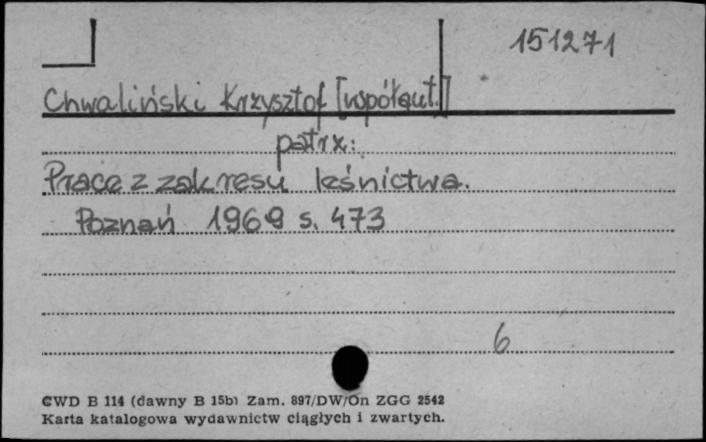 151271
Chwaliński Krzysztof [współaut.]
patrz:
Prace z zakresu leśnictwa.
Poznań 1969 s. 473
6
CWD B 114 (dawny B 15b) Zam. 897/DW/On ZGG 2542
Karta katalogowa wydawnictw ciągłych i zwartych.